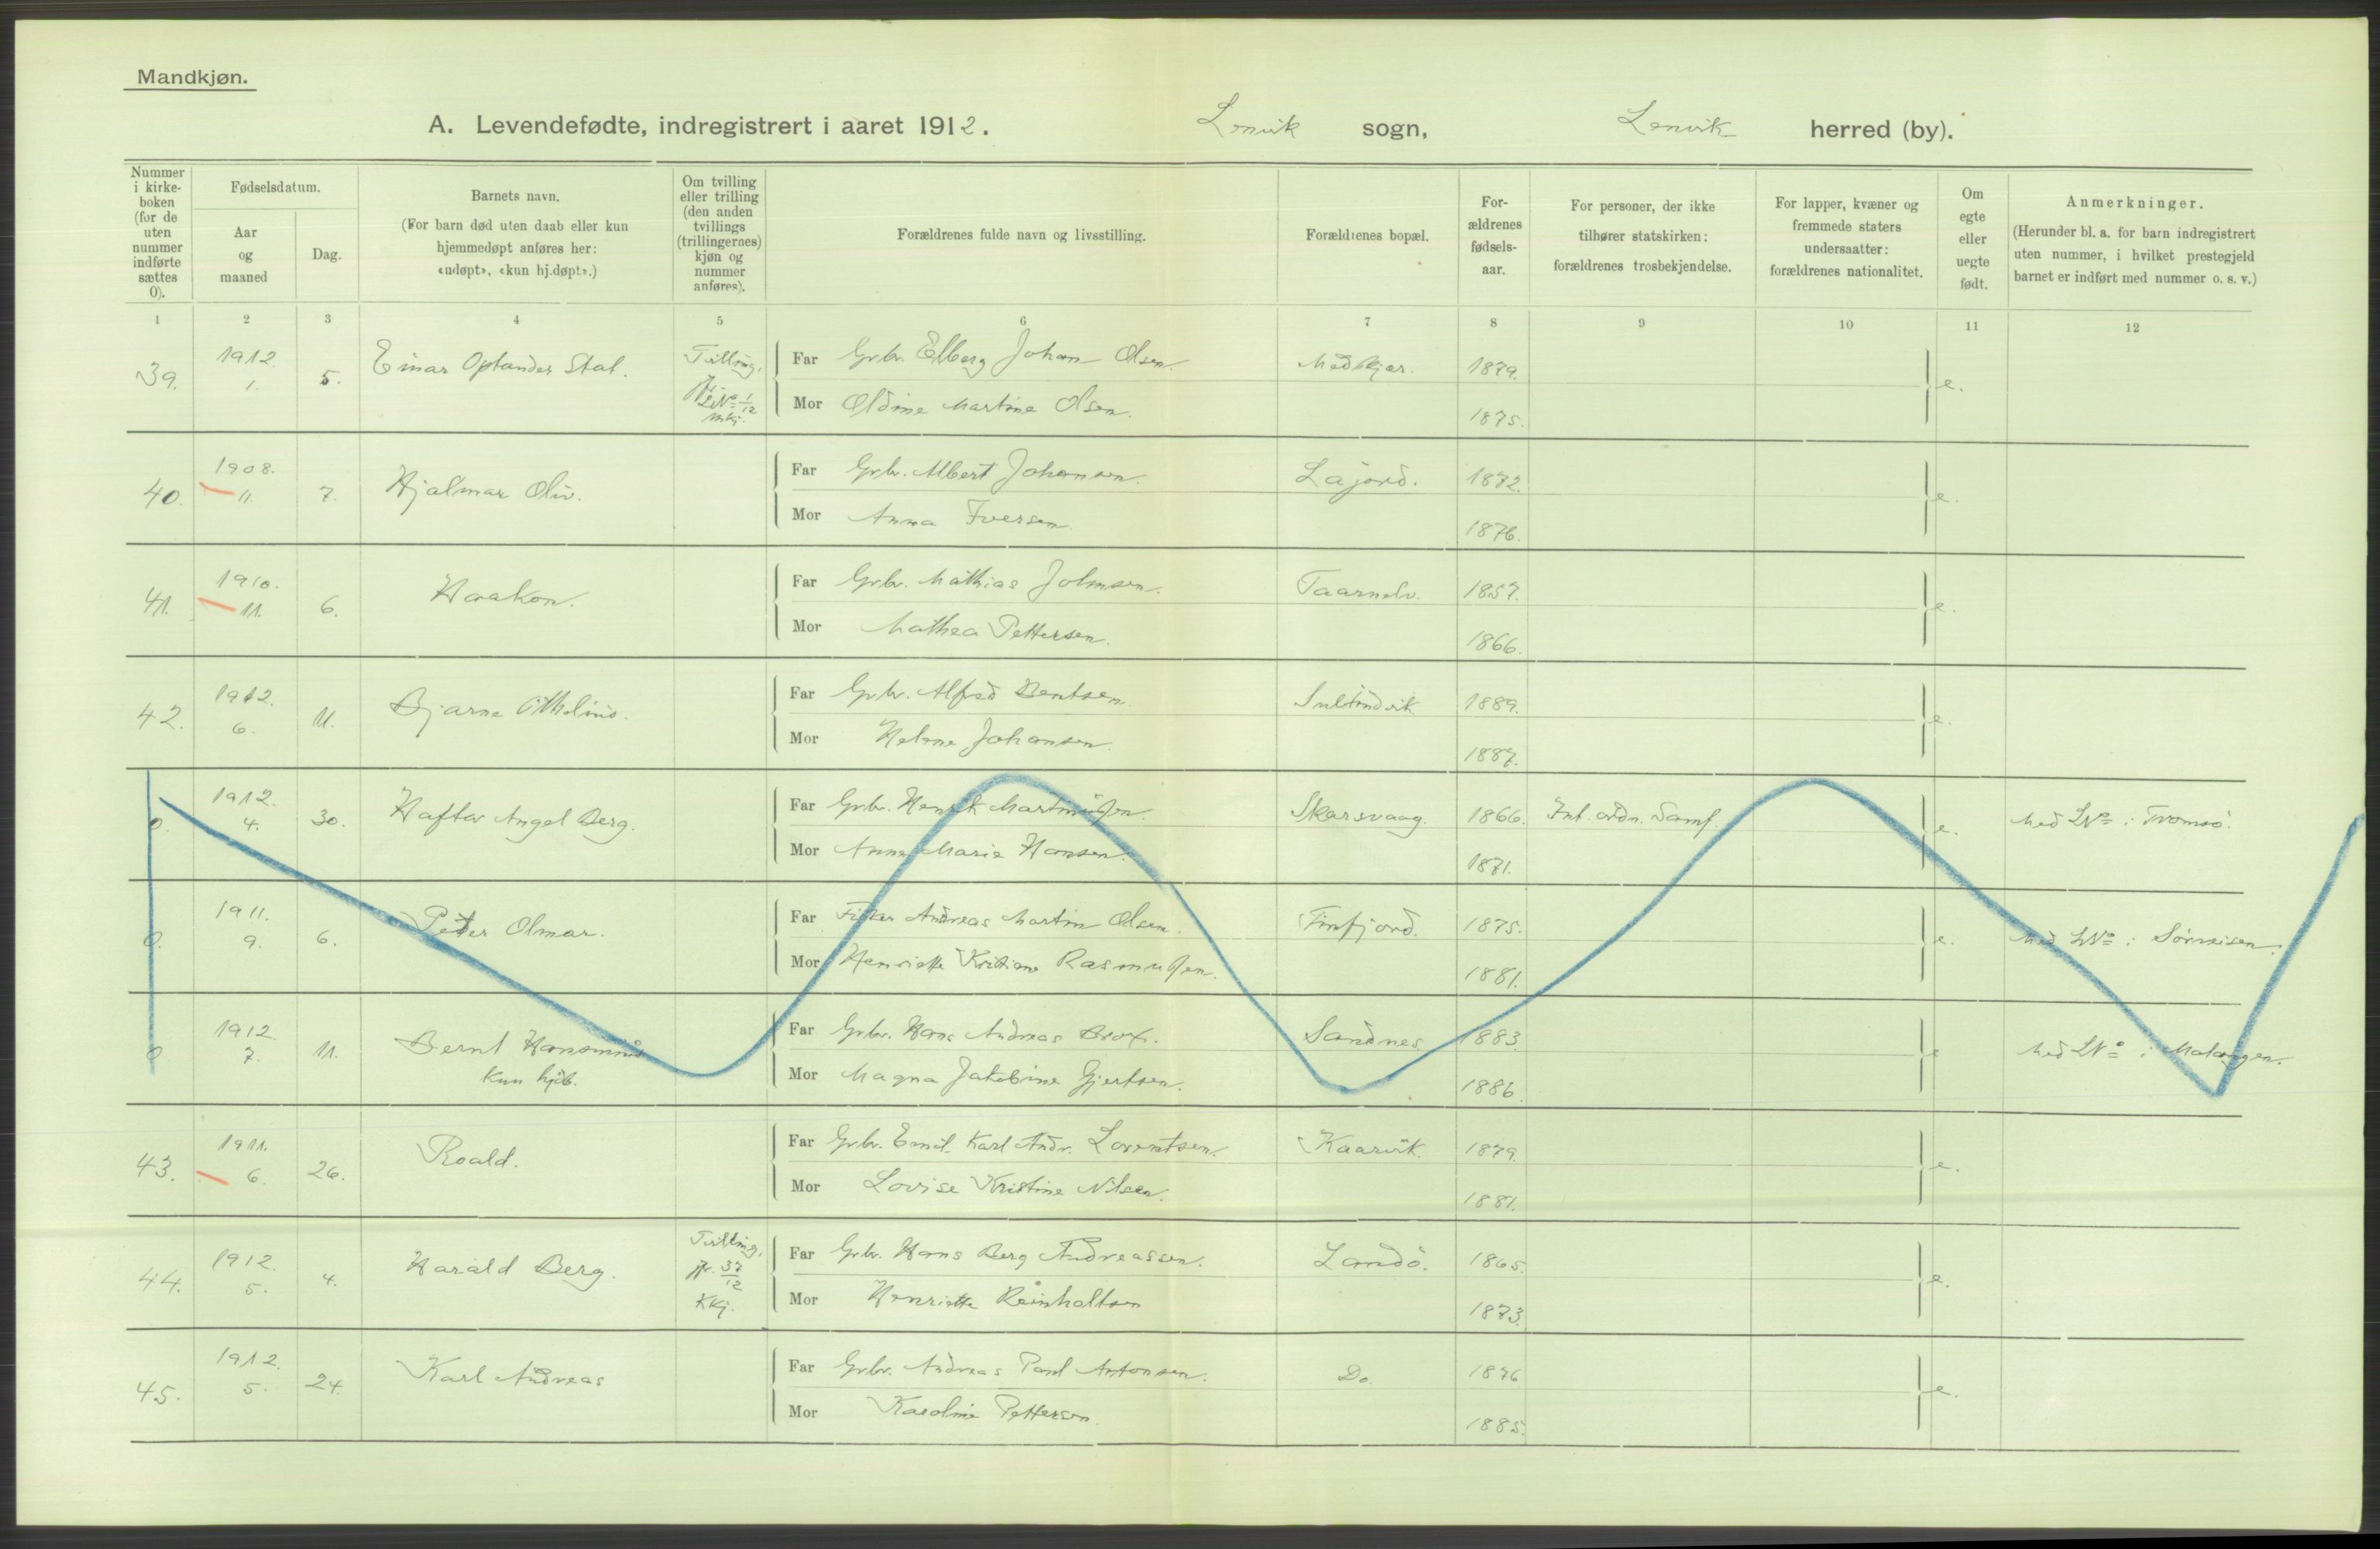 Mandkjøn.
A. Levendefødte, indregistrert i aaret 1912. Lenvik sogn, Lenvik herred (by).
Nummer i kirke-boken (for de uten nummer indførte sættes 0).
Fødselsdatum.
Aar og maaned
Dag.
Barnets navn.
(For barn død uten daab eller kun hjemmedøpt anføres her: «udøpt», «kun hj.døpt».)
Om tvilling eller trilling (den anden tvillings (trillingernes) kjøn og nummer anføres).
Forældrenes fulde navn og livsstilling.
Forældrenes bopæl.
For-ældrenes fødsels-aar.
For personer, der ikke tilhører statskirken: forældrenes trosbekjendelse.
For lapper, kvæner og fremmede staters undersaatter: forældrenes nationalitet.
Om egte eller uegte født.
Anmerkninger.
(Herunder bl. a. for barn indregistrert uten nummer, i hvilket prestegjeld barnet er indført med nummer o. s. v.)
1 2 3 4 5 6 7 8 9 10 11 12
39. 1912. 1. 5. Einar Optander Stal. Tvilling. LNo 1/12 Mkj. Far Grbr. Elberg Johan Olsen. 1879. e.
Mor Oldine Martine Olsen. 1875.
40. 1908. 11. 7. Hjalmar Oliv. Far Grbr. Albert Johansen. Lajord. 1872. e.
Mor Anna Iversen. 1876.
41. 1910. 11. 6. Haakon. Far Grbr. Mathias Johnsen. Taarnelv. 1857. e.
Mor Mathea Pettersen. 1866.
42. 1912. 6. 11. Bjarne Othelius. Far Grbr. Alfred Bentsen. 1889. e.
Mor Helene Johansen. 1887.
0. 1912. 4. 30. Haftor Angel Berg. Far Grbr. Henrik Martinussen. Skarsvaag. 1866. Int. ordn. Samf. e. Med LNo i Tromsø.
Mor Anne Marie Hansen. 1871.
0. 1911. 9. 6. Peder Olmar. Far Fisker Andreas Martin Olsen. Finfjord. 1875. e. Med LNo i Sørreisen.
Mor Henriette Kristiane Rasmussen. 1881.
0. 1912. 7. 11. Bernt Hansinius Kun hjdb. Far Grbr. Hans Andreas Brox. Sandnes. 1883. e Med LNo i Malangen.
Mor Magna Jakobine Gjertsen. 1886.
43. 1911. 6. 26. Roald. Far Grbr. Emil Karl Andr. Lorentsen. Kaarvik. 1879. e.
Mor Lovise Kristine Nilsen. 1881.
44. 1912. 5. 4. Harald Berg. Tvilling. Nr. 37/12 Kkj. Far Grbr. Hans Berg Andreassen. Landø. 1865. e.
Mor Henriette Reinholtsen 1873.
45. 1912. 5. 24. Karl Andreas Far Grbr. Andreas Paul Antonsen. Do. 1876 e.
Mor Karoline Pettersen. 1885.